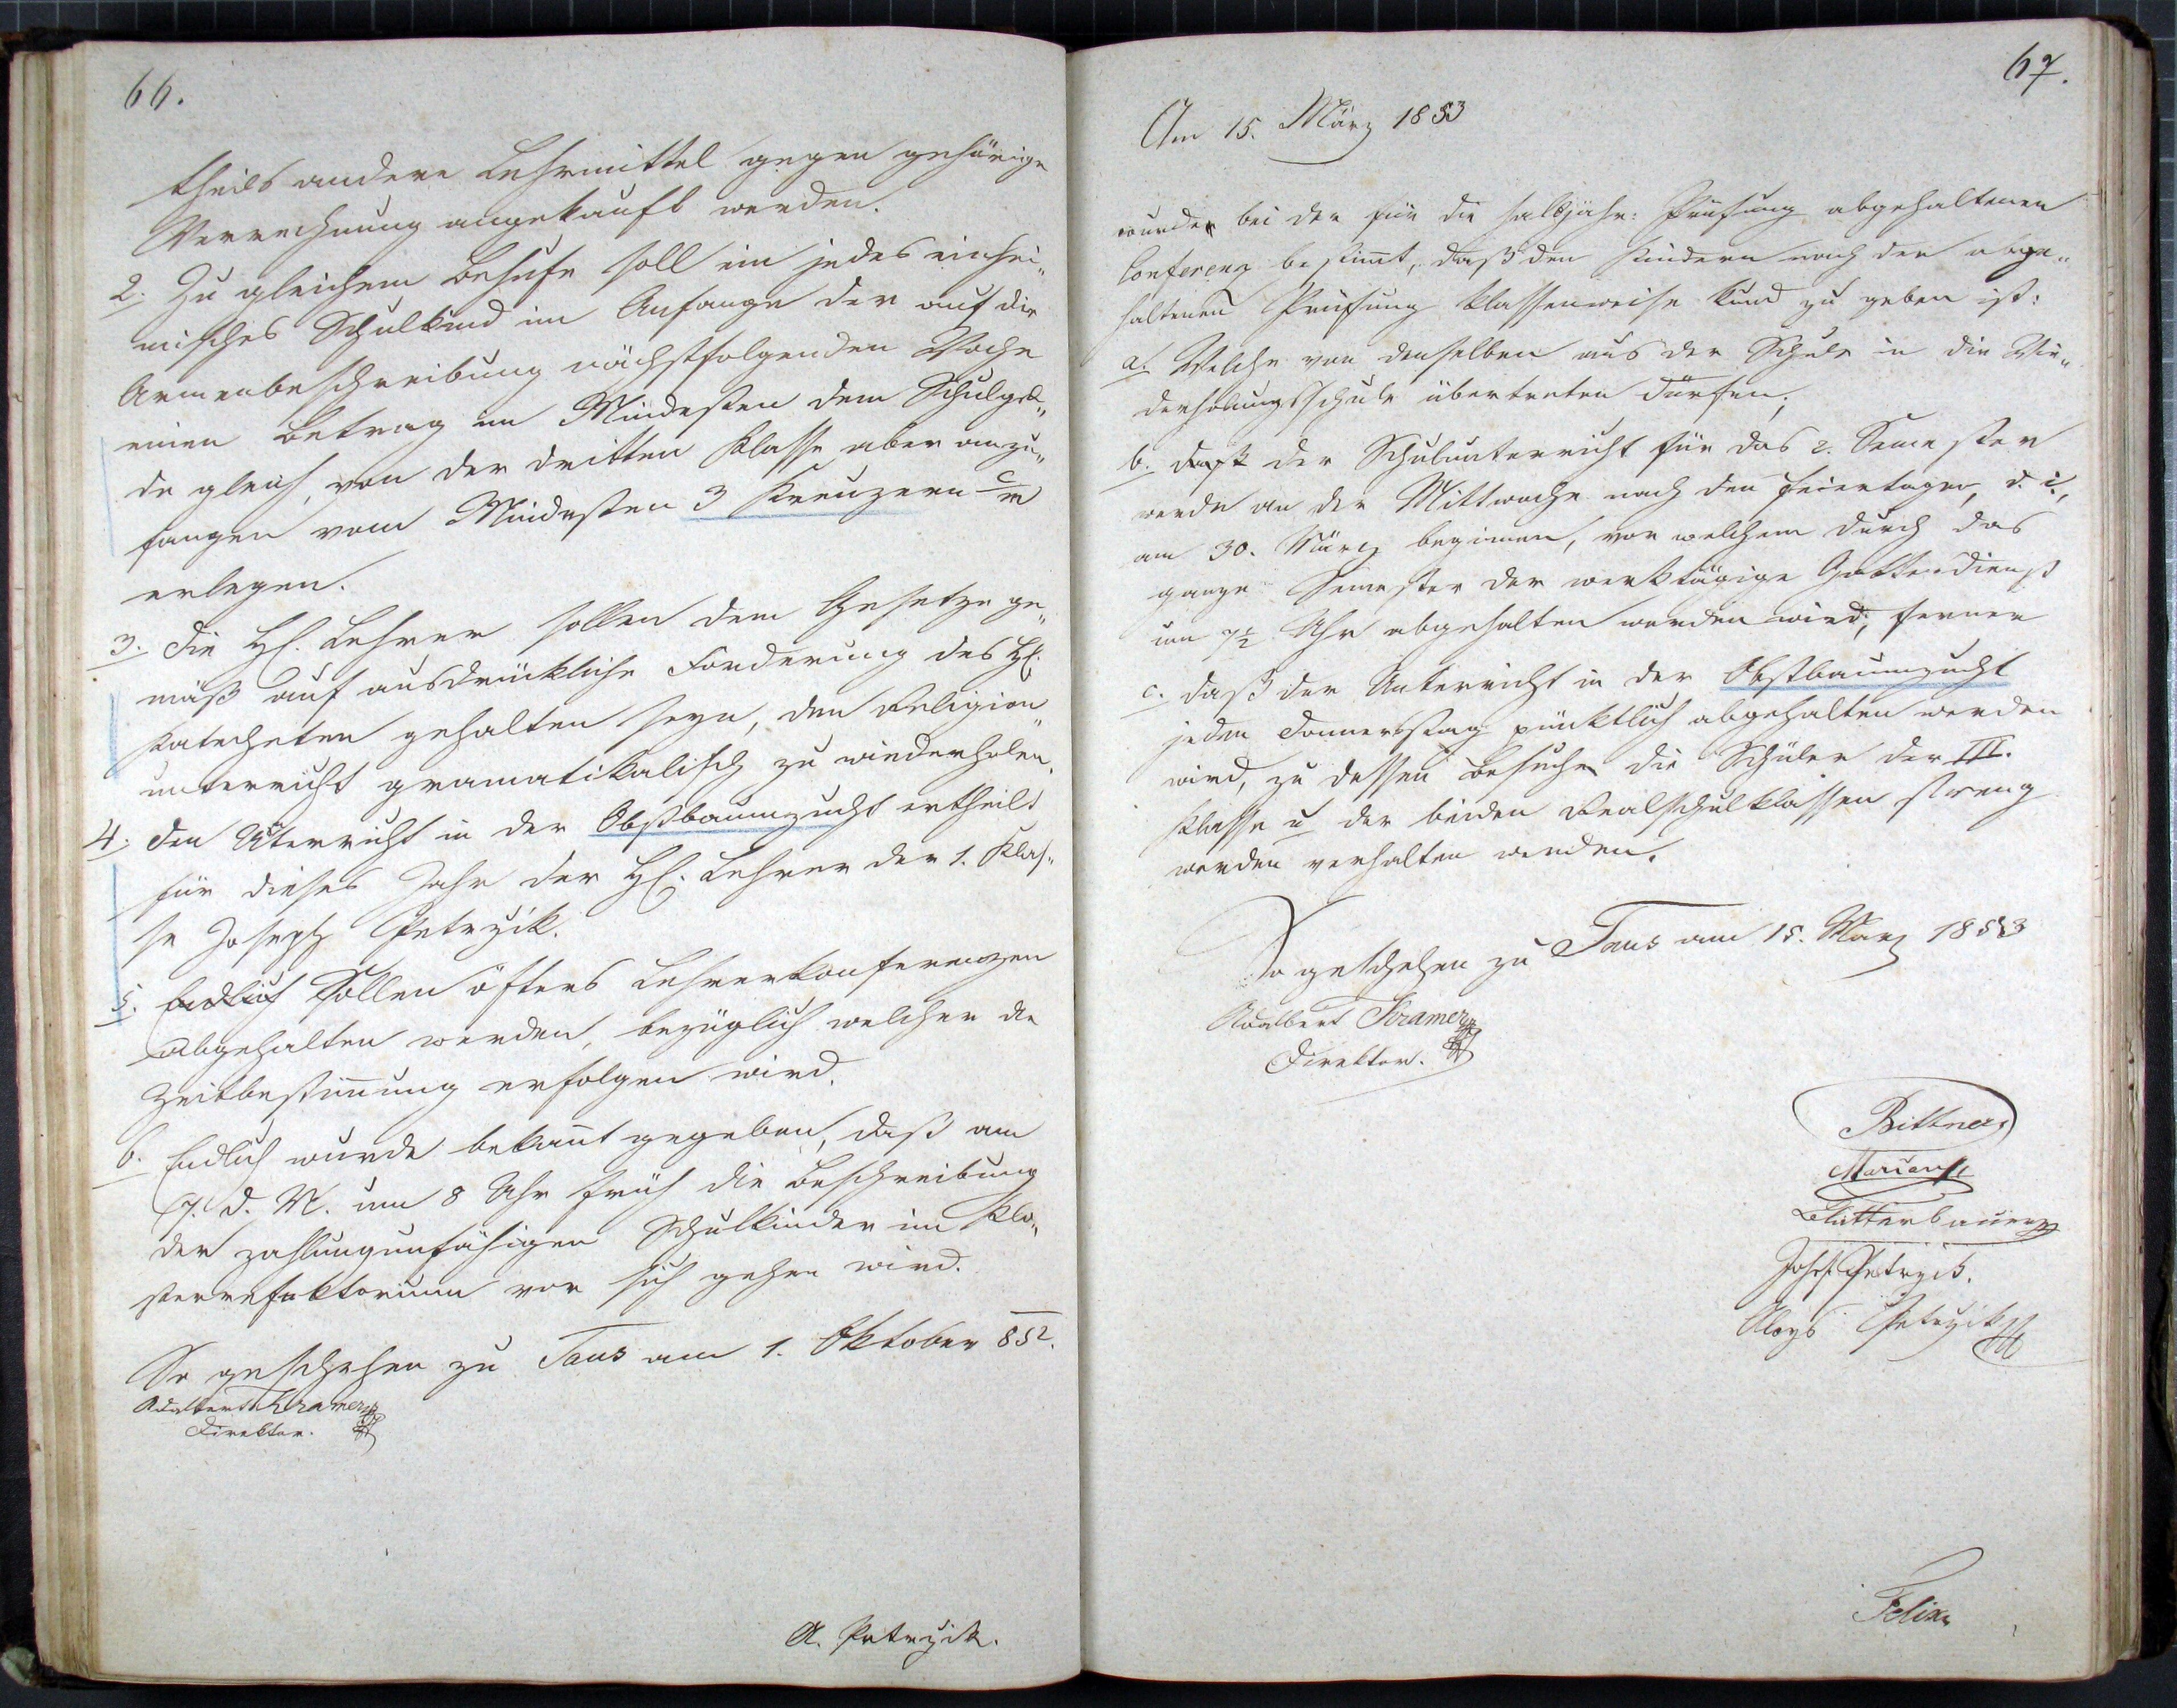 66.
theils andere Lehrmittel gegen gehörige
Verrechnung angekauft werden.
2. Zu gleichem Behufe soll ein jedes einhei„
misches Schulkind im Anfange der auf die
Armenbeschreibung nächstfolgenden Woche
einen Betrag im Mindesten dem Schulgel„
de gleich, von der dritten Klasse aber anzu„
fangen vom Mindesten 3 Kreuzern
erlegen.
3. Die H. Lehrer sollen dem Gesetze ge„
mäß auf ausdrückliche Forderung des H.
Katecheten gehalten seyn, den Religion„
unterricht gramatikalisch zu wiederholen.
4. Den Unterricht in der Obstbaumzucht ertheilt
für dieses Jahr der H. Lehrer der 1. Klas„
se Joseph Petrzik.
5. Endlich Sollen öfters Lehrerkonferenzen
abgehalten werden, bezüglich welcher die
Zeitbestimung erfolgen wird.
6. Endlich wurde bekannt gegeben, daß am
7. d. M. um 8 Uhr früh die Beschreibung
der zahlungunfähigen Schulkinder im Klo„
sterrefektorium vor sich gehen wird.
So geschehen zu Taus am 1. Oktober 852.
Adalbert Kramer
Direktor.
A. Petrzik.
67.
Am 15. März 1853
wurde bei der für die halbjähr: Prüfung abgehaltenen
Conferenz bestimt, daß den Kindern nach der abge„
haltenen Prüfung klassenweise kund zu geben ist:
a. Welche von denselben aus der Schule in die Wie„
derholungsschule übertreten dürfen;
b. daß der Schulunterricht für das 2. Semester
werde an der Mittwoche nach den Feiertagen, d. i.,
am 30. März beginnen, vor welchem durch das
ganze Semester der werktägige Gottesdienst
um 7½ Uhr abgehalten werden wird; ferner
c. daß der Unterricht in der Obstbaumzucht
jeden Donnerstag pünktlich abgehalten werden
wird, zu dessen Besuche die Schüler der III.
Klasse u der beiden Realschulklassen streng
werden verhalten werden.
So geschehen zu Taus am 15. März 1853
Adalbert Kramer
Direktor.
Bittner
Blütterbauer
Josef Petrzik.
Aloys Petrzik
Felix